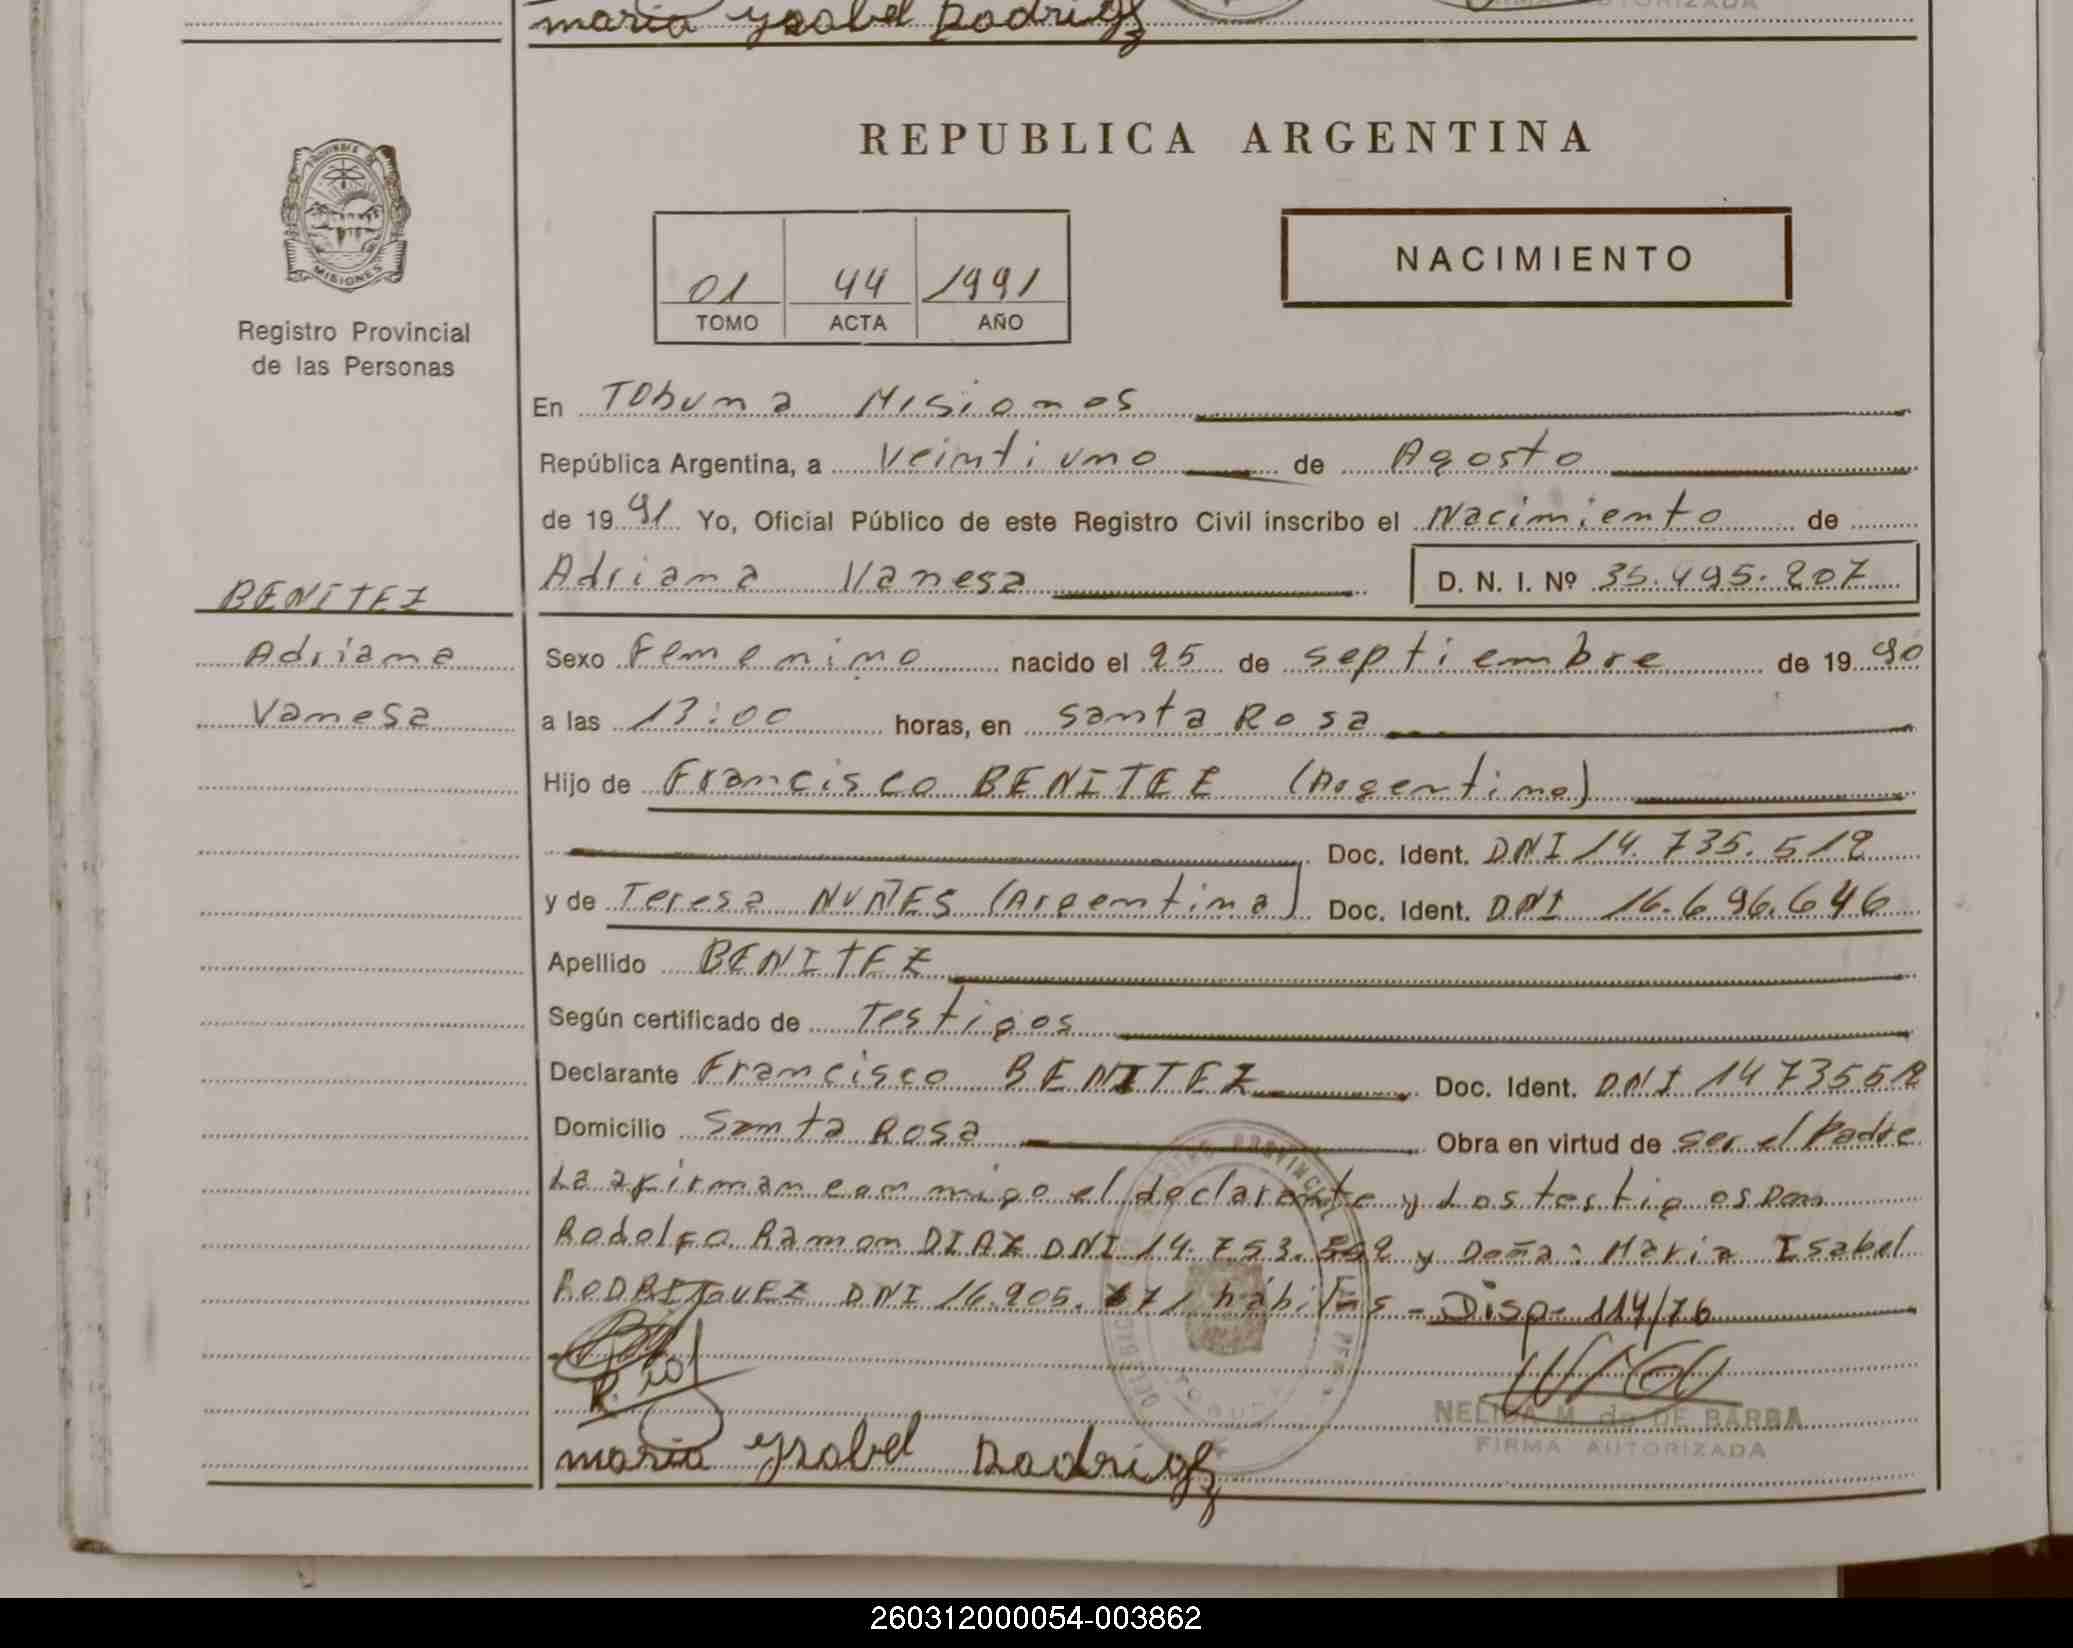 maria ysabel Rodrigz
FIRMA AUTORIZADA
REPUBLICA ARGENTINA
PROVINCIA DE
MISIONES
NACIMIENTO
01 44 1991
TOMO ACTA AÑO
Registro Provincial
de las Personas
En Tobuna Misiones
República Argentina, a Veintiuno de Agosto
de 1991 Yo, Oficial Público de este Registro Civil inscribo el Nacimiento de
Adriana Vanesa D. N. I. Nº 35.495.207
BENITEZ
Adriana Sexo Femenino nacido el 25 de septiembre de 1990
Vanesa a las 13:00 horas, en Santa Rosa
Hijo de Francisco BENITEZ (Argentino)
Doc. Ident. DNI 14.735.512
y de Teresa NUÑES (Argentina) Doc. Ident. DNI 16.696.646
Apellido BENITEZ
Según certificado de Testigos
Declarante Francisco BENITEZ Doc. Ident. DNI 14735512
Domicilio Santa Rosa Obra en virtud de ser el Padre
La afirman conmigo el declarante y Los testigos Don
Rodolfo Ramon DIAZ DNI 14.753. y Doña: Maria Isabel
RODRIGUEZ DNI 16.905. hábiles - Disp- 114/76
NELIDA M. de DE BARBA
FIRMA AUTORIZADA
maria ysabel Rodrigz
260312000054-003862